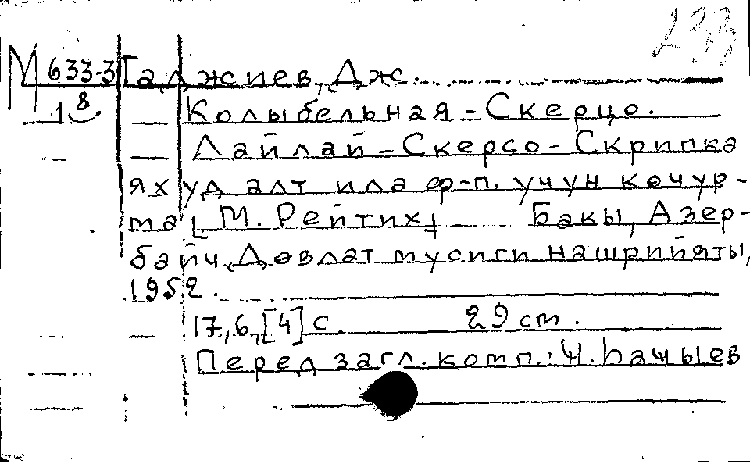 233
М 633-3 Гаджиев, Дж.
18
Колыбельная-Скерцо.
Лайлай-Скерсо-Скрипка
яхуд алт ила ф-п. учун кочур-
ма [М. Рейтих] Бакы, Азер-
байч. Довлат мусиги нашрийяты,
1952.
17, 6, [4] с. 29 cm.
Перед загл. комп.: Ч. Һачыев